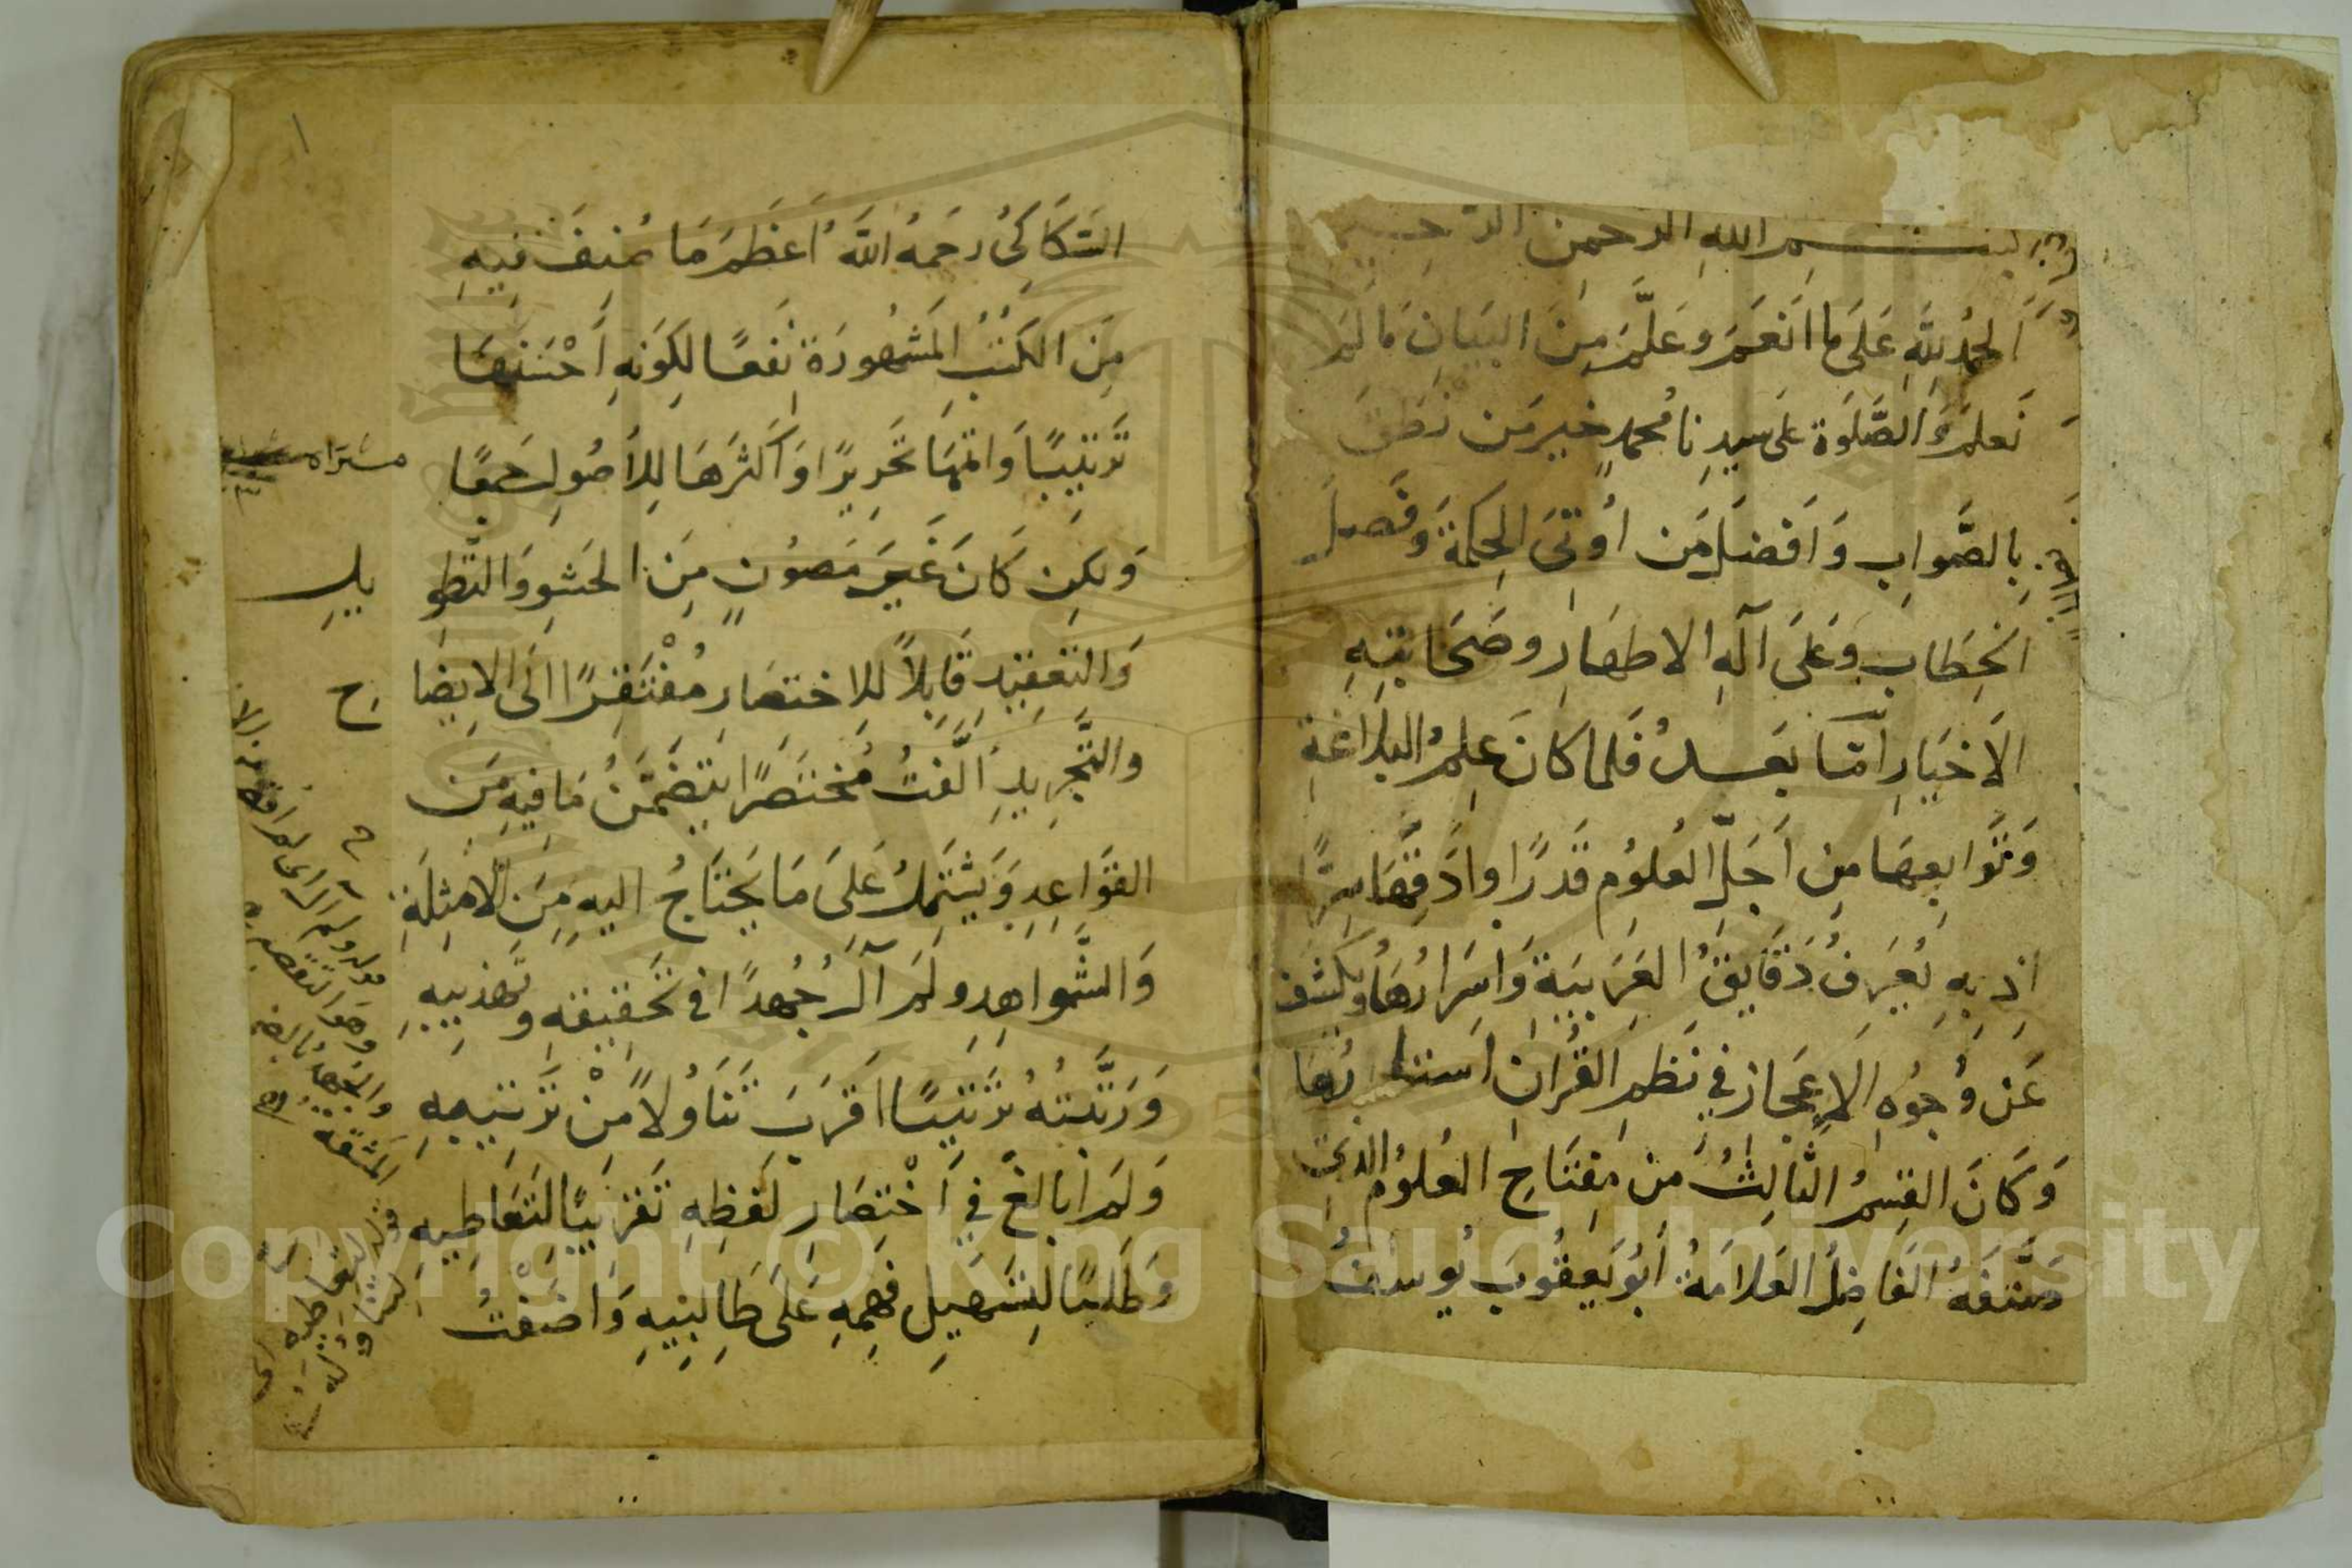 بسم الله الرحمن الرحيم
اَلحمدُ للهِ عَلَى ما انَعَمَ وعَلَّمَ مِنَ البَيَانِ مَا لَم
نَعلم وَالصَّلَوة على سيدِنا مُحمدٍ خيرِ مَن نَطَقَ
بِالصَّوابِ وَاَفضَلِ مَن اُوتىَ الحِكمةَ وَفَصلَ
الخِطَابِ وعَلىَ آلهِ الاطهارِ وصَحَابَتِهِ
الاَخيَارِ اَمّا بَعدُ فَلما كانَ عِلمُ البلاغةِ
وَتَوَابِعهَا مِن اَجَلّ العُلوُم قَدرًا وادَقِّهَا سِرًّا
اِذ بِهِ تُعرَفُ دَقَايِقُ العَرَبيَةِ وَاسرَارُهَا ويكشَف
عَن وُجوُهِ الاِعجَازِ في نَظمِ القُرانِ استارُها
وَكَانَ القِسمُ الثَّالِثُ مِن مِفتَاحِ العُلوُم الذى
صَنَّفَهُ الفَاضِلُ العَلامَةُ اَبوُ يَعقوُبَ يوُسفُ
السَّكَاكِىُ رحَمهُ اللهَ اَعظَمَ مَا صُنِفَ فيهِ
مِنَ الكُتُبِ المَشهُورَةِ نَفعًا لكِوَنهِ اَحْسَنهَا
تَرتيبًا وَاتمَّهَا تَحريرًا وَاكَثرَهَا لِلاُصُولِ جَمعًا
وَلكِن كَانَ غَيرَ مَصوُنٍ مِنَ الحَشوِ وَالتَّطوِ
يلِ
وَالتَعقِيدِ قَابِلاً لِلاِختصَارِ مُفْتَقِرًا الَى الايضَا
حِ
والتَّجرِيدِ اَلَّفتُ مُختَصَرًا يتَضَمَّنُ مَا فيهِ مَن
القَوَاعِدِ وَيَشتَمِلُ عَلىَ مَا يَحتَاجُ اليهِ مِنَ الاَمثِلَةِ
وَالشَّواهِدِ ولَم آلُ جُهدًا فى تَحقيقهِ وتَهذيبِهِ
وَرَتَّبتُهُ تَرتَيبًا اَقرَبَ تَنَاوُلاً مِنْ تَرتيبِهِ
وَلَم اُبالغ في اَخْتِصَارِ لَفظِهِ تَقريبًا لتَعَاطِيهِ
وَطَلَبًا لتِسَهيلِ فَهمِهِ عَلىَ طَالِبيهِ وَاضَفْتُ